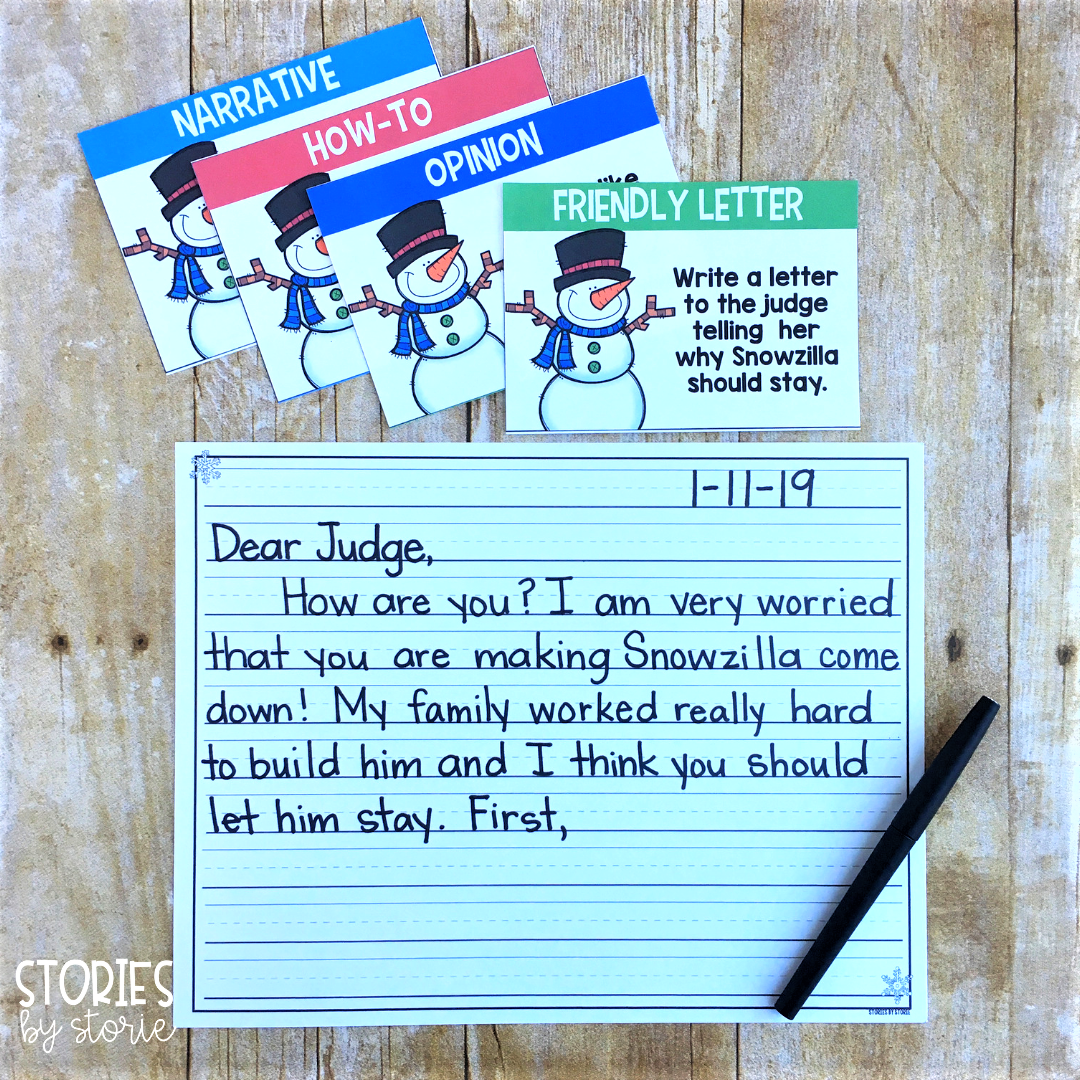 NARRATIVE
HOW-TO
OPINION
like
FRIENDLY LETTER
Write a letter
to the judge
telling her
why Snowzilla
should stay.
1-11-19
Dear Judge,
How are you? I am very worried
that you are making Snowzilla come
down! My family worked really hard
to build him and I think you should
let him stay. First,
STORIES BY STORIE
STORIES
by storie